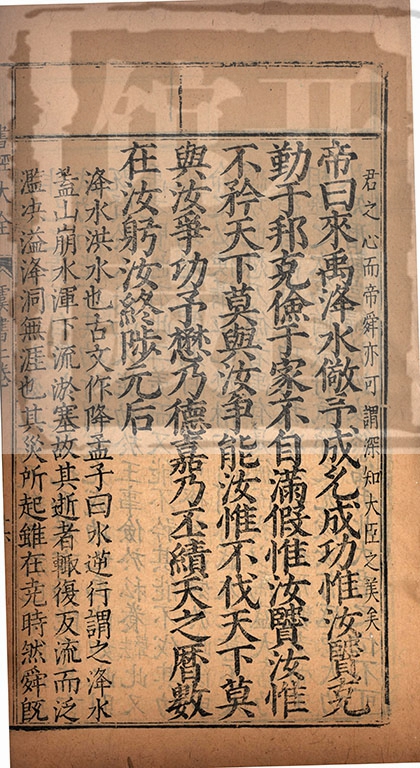 君之心而帝舜亦可謂深知大臣之美矣
帝曰來禹洚水儆予成允成功惟汝賢克
勤于邦克儉于家不自滿假惟汝賢汝惟
不矜天下莫與汝争能汝惟不伐天下莫
與汝爭功予懋乃德嘉乃丕績天之曆數
在汝躬汝終陟元后
洚水洪水也古文作降孟子曰水逆行謂之洚水
蓋山崩水渾下流淤塞故其逝者輒復反流而泛
濫決溢洚洞無涯也其災所起雖在堯時然舜既
書經大全